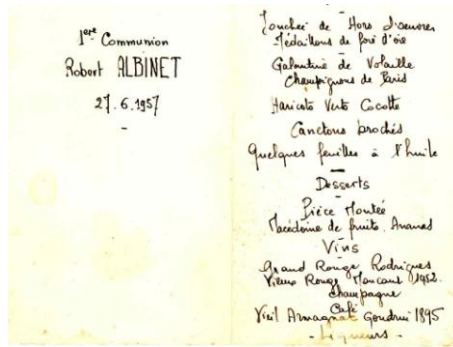 1ère Communion
Robert ALBINET
27.6.1957
-
Jonchée de Hors d'œuvres
Médaillons de foie d'oie
-
Galantine de Volaille
Champignons de Paris
-
Haricots Verts Cocotte
-
Canetons brochés
-
Quelques feuilles à l'huile
-
Desserts
-
Pièce Montée
Macédoine de fruits. Ananas
-
Vins
-
Grand Rouge Rodrigues
Vieux Rouge 1952
Champagne
Café
Vieil Armagnac 1895
- Liqueurs -